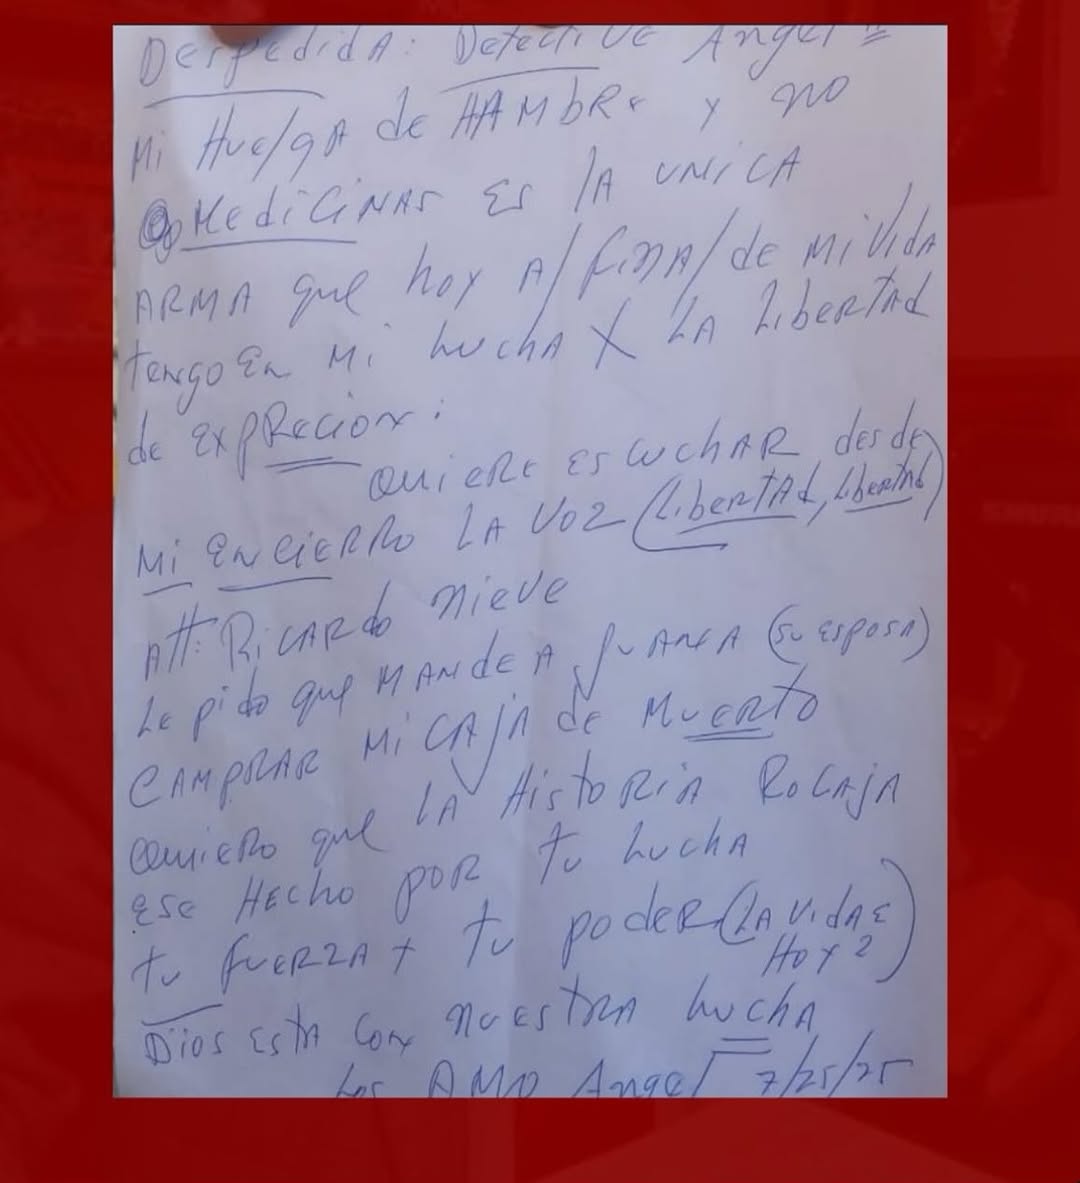 Despedida: Detective Angel
Mi Huelga de HAMbRe y no
Medicinas es la unica
ARMA que hoy al final de mi vida
tengo en mi lucha X la Libertad
de expRecion:
quiere escuchar desde
mi encierro la voz (Libertad, Libertad)
Att: Ricardo nieve
Le pido que mande a Juanea (su esposa)
camprar mi caja de muerto
quiero que la Historia Rocaja
ese Hecho por tu lucha
tu fuerza + tu poder (la vida e
Hoy 2)
Dios esta con nuestra lucha
Los AMO Angel 7/25/25